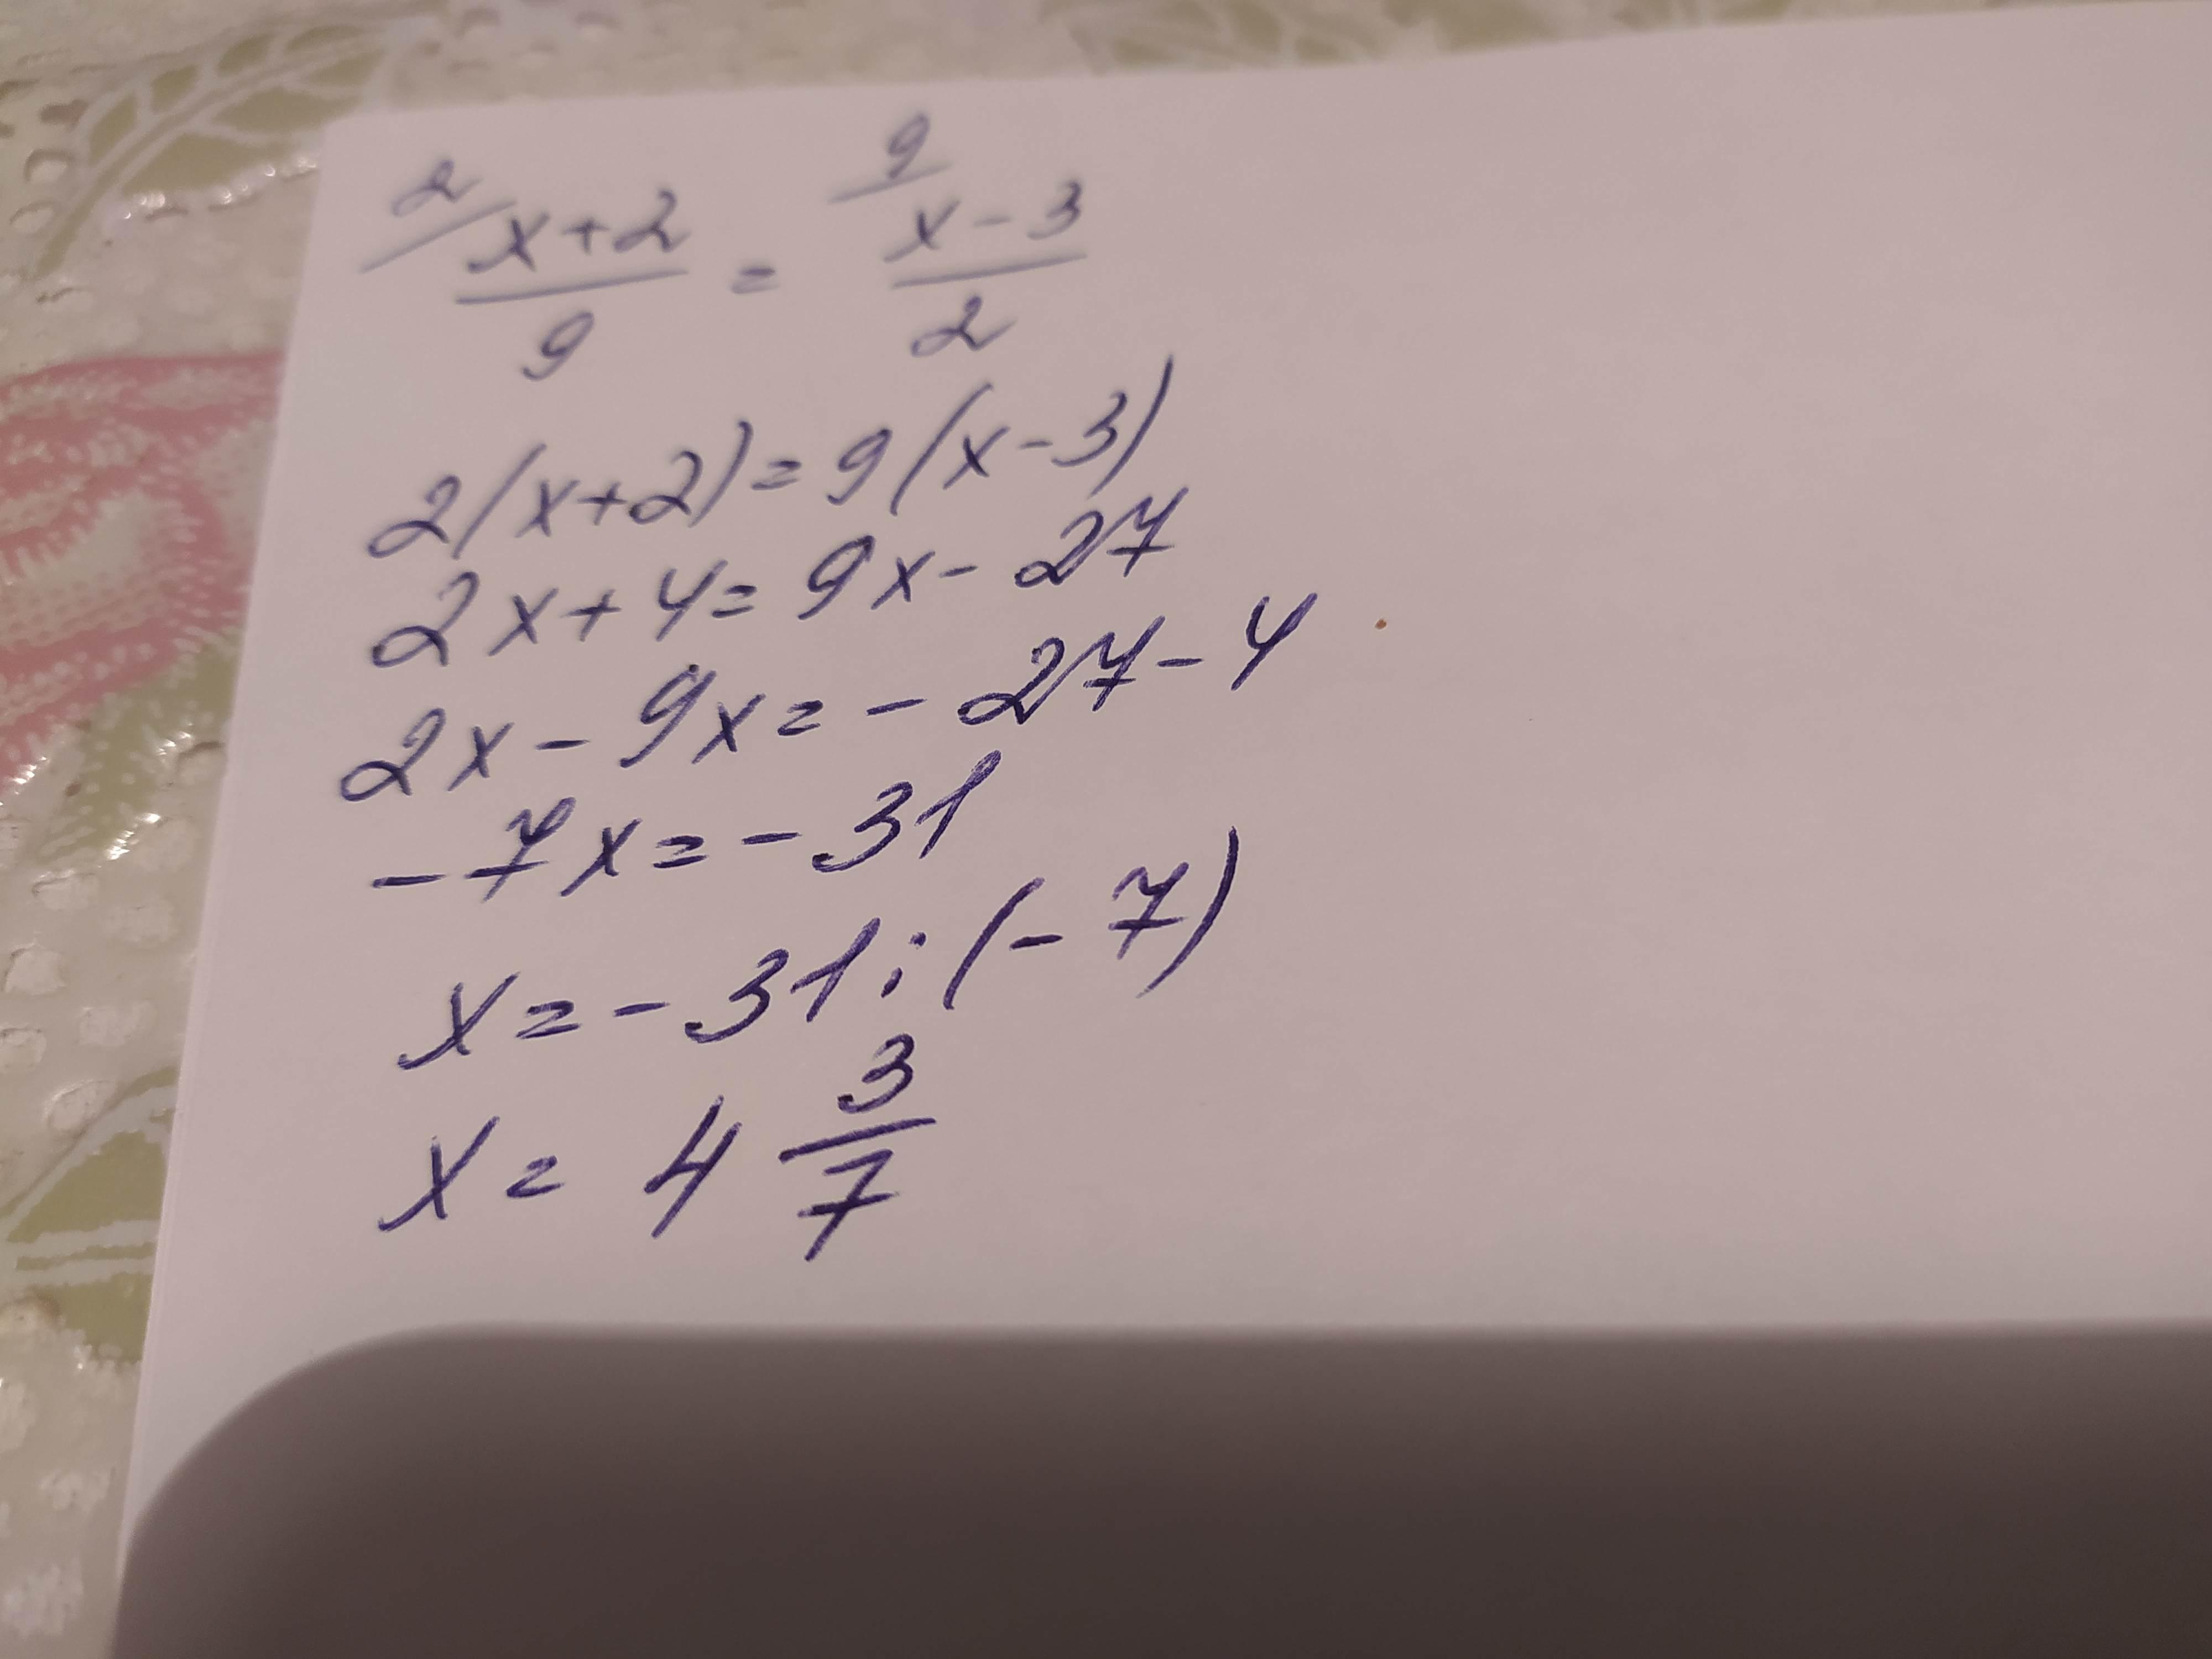 2/ x+2/9 = 9/ x-3/2
2(x+2)=9(x-3)
2x+4=9x-27
2x-9x=-27-4
-7x=-31
x=-31:(-7)
x=4 3/7